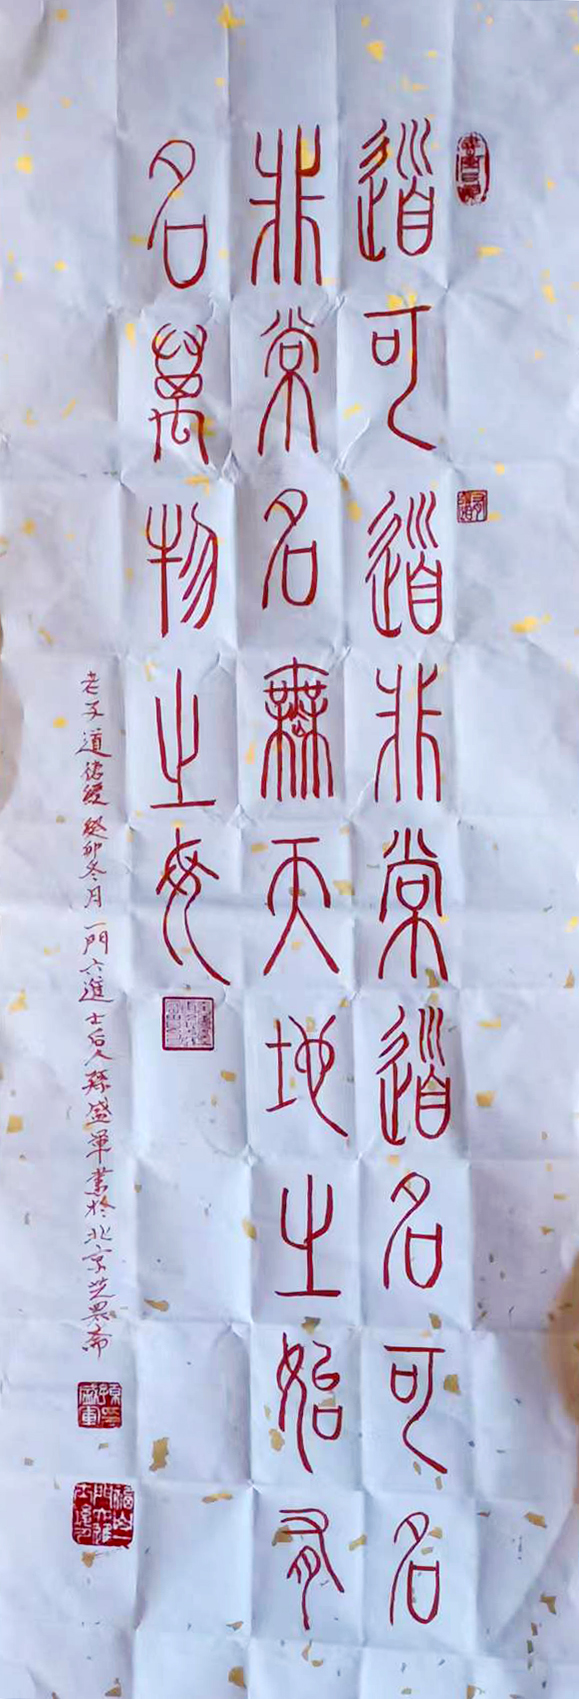 道可道非常道名可名
非常名無天地之始有
名萬物之母
老子道德經癸卯冬月一門六進士后人孫盛軍業於北京芝墨斋
孫盛軍印